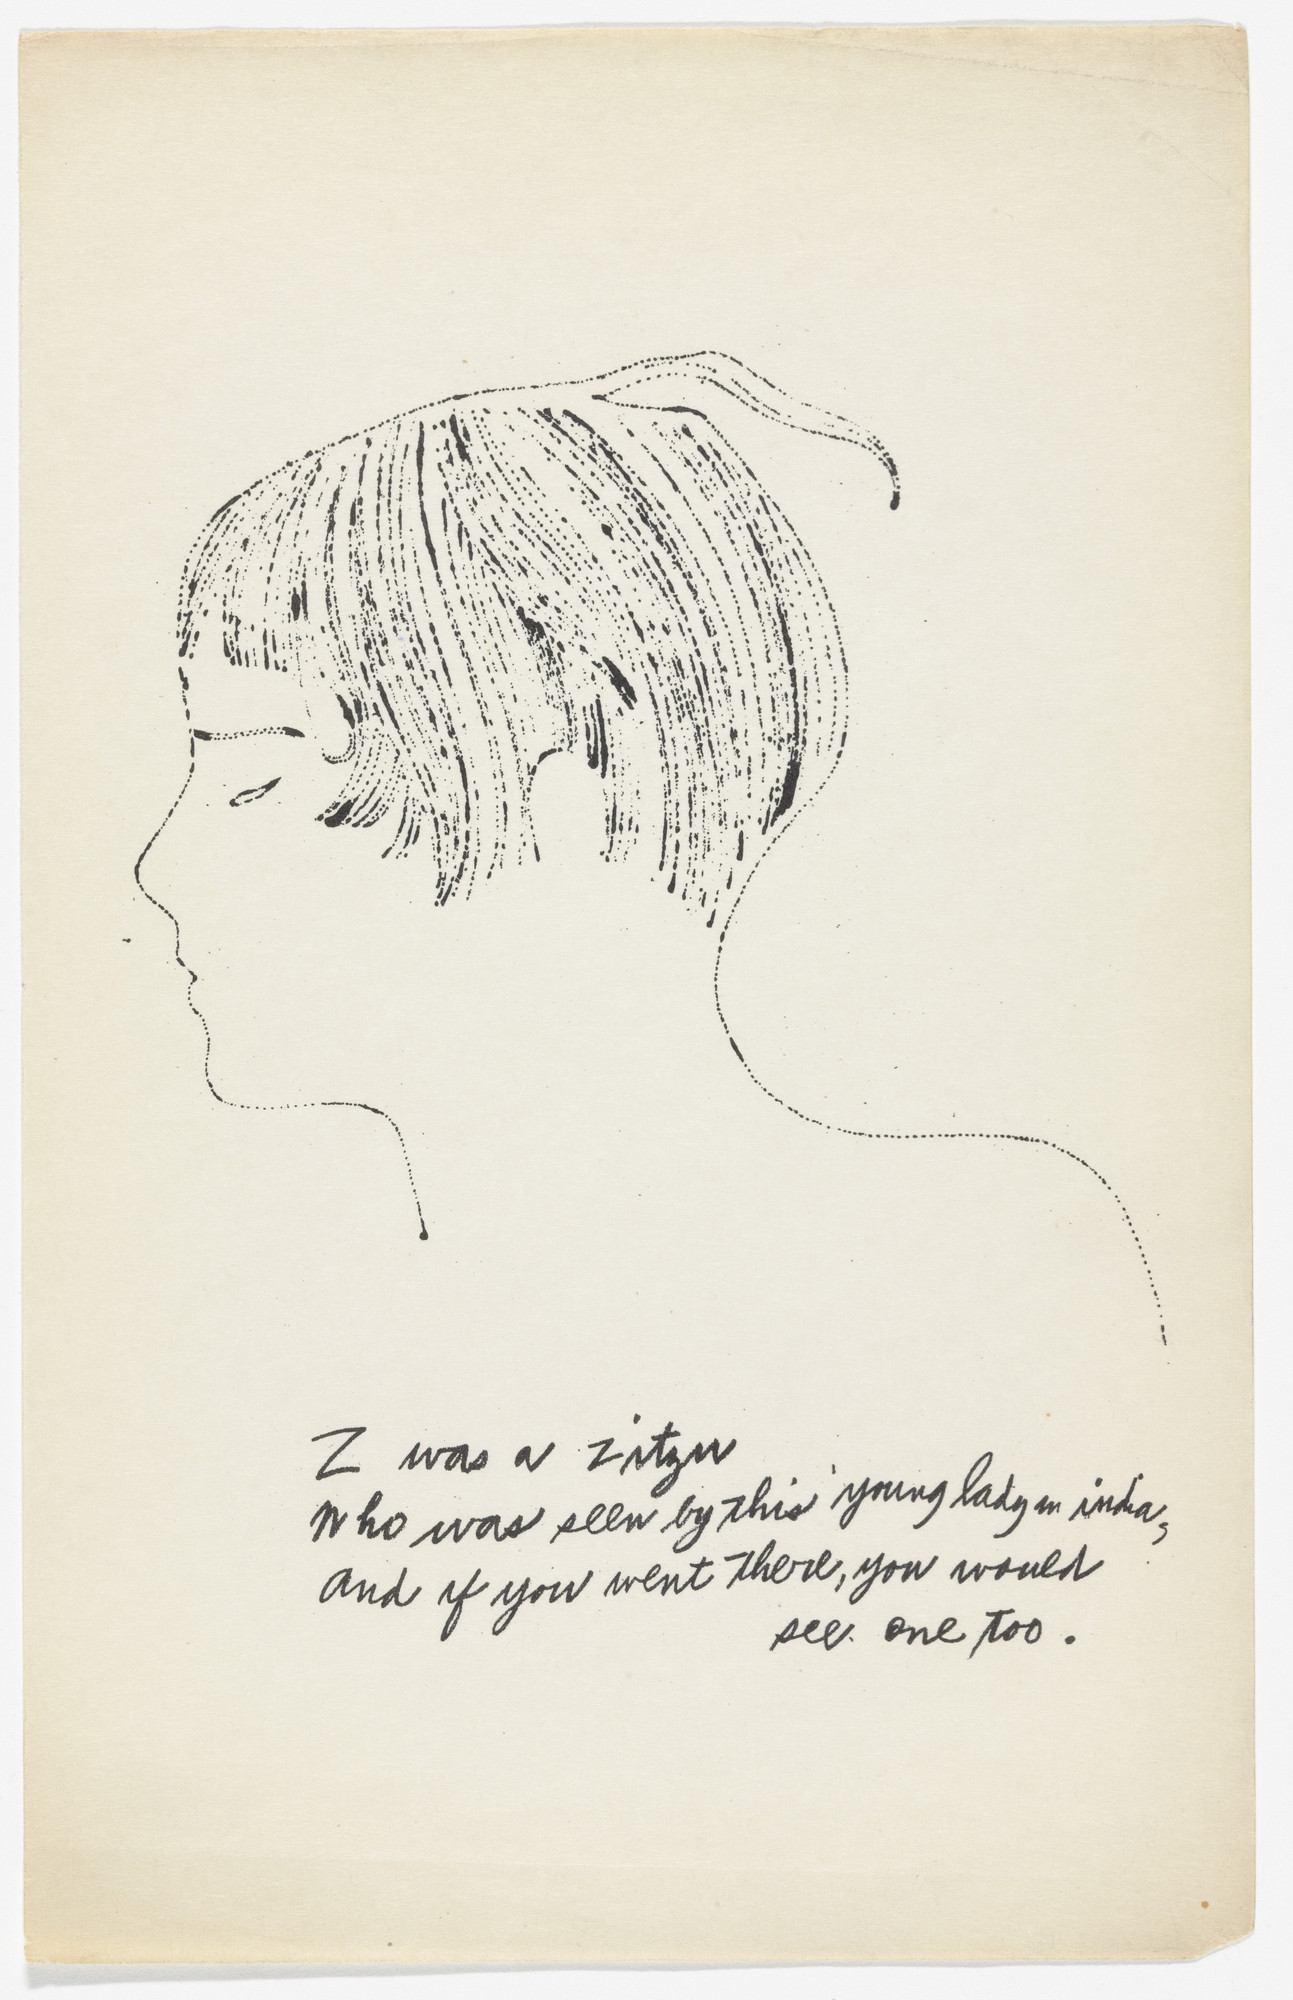 Z was a zitzu
Who was seen by this young lady in india,
and if you went there, you would
see one too.